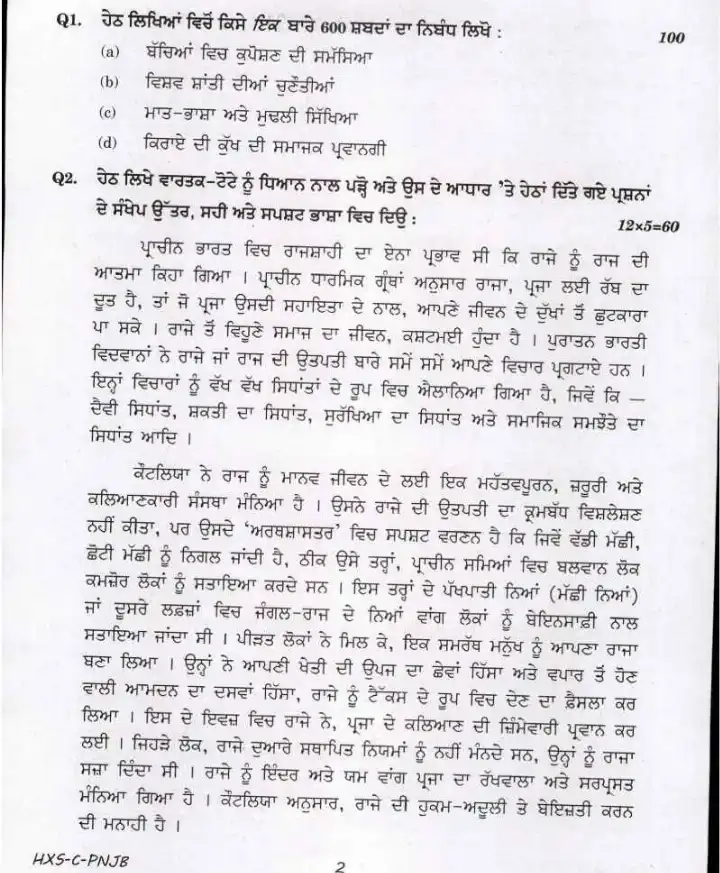 Q1. ਹੇਠ ਲਿਖਿਆਂ ਵਿਚੋਂ ਕਿਸੇ ਇਕ ਬਾਰੇ 600 ਸ਼ਬਦਾਂ ਦਾ ਨਿਬੰਧ ਲਿਖੋ : 100
(a) ਬੱਚਿਆਂ ਵਿਚ ਕੁਪੋਸ਼ਣ ਦੀ ਸਮੱਸਿਆ
(b) ਵਿਸ਼ਵ ਸ਼ਾਂਤੀ ਦੀਆਂ ਚੁਣੌਤੀਆਂ
(c) ਮਾਤ-ਭਾਸ਼ਾ ਅਤੇ ਮੁਢਲੀ ਸਿੱਖਿਆ
(d) ਕਿਰਾਏ ਦੀ ਕੁੱਖ ਦੀ ਸਮਾਜਕ ਪ੍ਰਵਾਨਗੀ
Q2. ਹੇਠ ਲਿਖੇ ਵਾਰਤਕ-ਟੋਟੇ ਨੂੰ ਧਿਆਨ ਨਾਲ ਪੜ੍ਹੋ ਅਤੇ ਉਸ ਦੇ ਆਧਾਰ 'ਤੇ ਹੇਠਾਂ ਦਿੱਤੇ ਗਏ ਪ੍ਰਸ਼ਨਾਂ
ਦੇ ਸੰਖੇਪ ਉੱਤਰ, ਸਹੀ ਅਤੇ ਸਪਸ਼ਟ ਭਾਸ਼ਾ ਵਿਚ ਦਿਉ : 12×5=60
ਪ੍ਰਾਚੀਨ ਭਾਰਤ ਵਿਚ ਰਾਜਸ਼ਾਹੀ ਦਾ ਏਨਾ ਪ੍ਰਭਾਵ ਸੀ ਕਿ ਰਾਜੇ ਨੂੰ ਰਾਜ ਦੀ
ਆਤਮਾ ਕਿਹਾ ਗਿਆ । ਪ੍ਰਾਚੀਨ ਧਾਰਮਿਕ ਗ੍ਰੰਥਾਂ ਅਨੁਸਾਰ ਰਾਜਾ, ਪ੍ਰਜਾ ਲਈ ਰੱਬ ਦਾ
ਦੂਤ ਹੈ, ਤਾਂ ਜੋ ਪ੍ਰਜਾ ਉਸਦੀ ਸਹਾਇਤਾ ਦੇ ਨਾਲ, ਆਪਣੇ ਜੀਵਨ ਦੇ ਦੁੱਖਾਂ ਤੋਂ ਛੁਟਕਾਰਾ
ਪਾ ਸਕੇ । ਰਾਜੇ ਤੋਂ ਵਿਹੂਣੇ ਸਮਾਜ ਦਾ ਜੀਵਨ, ਕਸ਼ਟਮਈ ਹੁੰਦਾ ਹੈ । ਪੁਰਾਤਨ ਭਾਰਤੀ
ਵਿਦਵਾਨਾਂ ਨੇ ਰਾਜੇ ਜਾਂ ਰਾਜ ਦੀ ਉਤਪਤੀ ਬਾਰੇ ਸਮੇਂ ਸਮੇਂ ਆਪਣੇ ਵਿਚਾਰ ਪ੍ਰਗਟਾਏ ਹਨ ।
ਇਨ੍ਹਾਂ ਵਿਚਾਰਾਂ ਨੂੰ ਵੱਖ ਵੱਖ ਸਿਧਾਂਤਾਂ ਦੇ ਰੂਪ ਵਿਚ ਐਲਾਨਿਆ ਗਿਆ ਹੈ, ਜਿਵੇਂ ਕਿ —
ਦੈਵੀ ਸਿਧਾਂਤ, ਸ਼ਕਤੀ ਦਾ ਸਿਧਾਂਤ, ਸੁਰੱਖਿਆ ਦਾ ਸਿਧਾਂਤ ਅਤੇ ਸਮਾਜਿਕ ਸਮਝੌਤੇ ਦਾ
ਸਿਧਾਂਤ ਆਦਿ ।
ਕੌਟਲਿਯਾ ਨੇ ਰਾਜ ਨੂੰ ਮਾਨਵ ਜੀਵਨ ਦੇ ਲਈ ਇਕ ਮਹੱਤਵਪੂਰਨ, ਜ਼ਰੂਰੀ ਅਤੇ
ਕਲਿਆਣਕਾਰੀ ਸੰਸਥਾ ਮੰਨਿਆ ਹੈ । ਉਸਨੇ ਰਾਜੇ ਦੀ ਉਤਪਤੀ ਦਾ ਕ੍ਰਮਬੱਧ ਵਿਸ਼ਲੇਸ਼ਣ
ਨਹੀਂ ਕੀਤਾ, ਪਰ ਉਸਦੇ 'ਅਰਥਸ਼ਾਸਤਰ' ਵਿਚ ਸਪਸ਼ਟ ਵਰਣਨ ਹੈ ਕਿ ਜਿਵੇਂ ਵੱਡੀ ਮੱਛੀ,
ਛੋਟੀ ਮੱਛੀ ਨੂੰ ਨਿਗਲ ਜਾਂਦੀ ਹੈ, ਠੀਕ ਉਸੇ ਤਰ੍ਹਾਂ, ਪ੍ਰਾਚੀਨ ਸਮਿਆਂ ਵਿਚ ਬਲਵਾਨ ਲੋਕ
ਕਮਜ਼ੋਰ ਲੋਕਾਂ ਨੂੰ ਸਤਾਇਆ ਕਰਦੇ ਸਨ । ਇਸ ਤਰ੍ਹਾਂ ਦੇ ਪੱਖਪਾਤੀ ਨਿਆਂ (ਮੱਛੀ ਨਿਆਂ)
ਜਾਂ ਦੂਸਰੇ ਲਫ਼ਜ਼ਾਂ ਵਿਚ ਜੰਗਲ-ਰਾਜ ਦੇ ਨਿਆਂ ਵਾਂਗ ਲੋਕਾਂ ਨੂੰ ਬੇਇਨਸਾਫ਼ੀ ਨਾਲ
ਸਤਾਇਆ ਜਾਂਦਾ ਸੀ । ਪੀੜਤ ਲੋਕਾਂ ਨੇ ਮਿਲ ਕੇ, ਇਕ ਸਮਰੱਥ ਮਨੁੱਖ ਨੂੰ ਆਪਣਾ ਰਾਜਾ
ਬਣਾ ਲਿਆ । ਉਨ੍ਹਾਂ ਨੇ ਆਪਣੀ ਖੇਤੀ ਦੀ ਉਪਜ ਦਾ ਛੇਵਾਂ ਹਿੱਸਾ ਅਤੇ ਵਪਾਰ ਤੋਂ ਹੋਣ
ਵਾਲੀ ਆਮਦਨ ਦਾ ਦਸਵਾਂ ਹਿੱਸਾ, ਰਾਜੇ ਨੂੰ ਟੈੱਕਸ ਦੇ ਰੂਪ ਵਿਚ ਦੇਣ ਦਾ ਫ਼ੈਸਲਾ ਕਰ
ਲਿਆ । ਇਸ ਦੇ ਇਵਜ਼ ਵਿਚ ਰਾਜੇ ਨੇ, ਪ੍ਰਜਾ ਦੇ ਕਲਿਆਣ ਦੀ ਜ਼ਿੰਮੇਵਾਰੀ ਪ੍ਰਵਾਨ ਕਰ
ਲਈ । ਜਿਹੜੇ ਲੋਕ, ਰਾਜੇ ਦੁਆਰੇ ਸਥਾਪਿਤ ਨਿਯਮਾਂ ਨੂੰ ਨਹੀਂ ਮੰਨਦੇ ਸਨ, ਉਨ੍ਹਾਂ ਨੂੰ ਰਾਜਾ
ਸਜ਼ਾ ਦਿੰਦਾ ਸੀ । ਰਾਜੇ ਨੂੰ ਇੰਦਰ ਅਤੇ ਯਮ ਵਾਂਗ ਪ੍ਰਜਾ ਦਾ ਰੱਖਵਾਲਾ ਅਤੇ ਸਰਪ੍ਰਸਤ
ਮੰਨਿਆ ਗਿਆ ਹੈ । ਕੌਟਲਿਯਾ ਅਨੁਸਾਰ, ਰਾਜੇ ਦੀ ਹੁਕਮ-ਅਦੂਲੀ ਤੇ ਬੇਇਜ਼ਤੀ ਕਰਨ
ਦੀ ਮਨਾਹੀ ਹੈ ।
HXS-C-PNJB
2